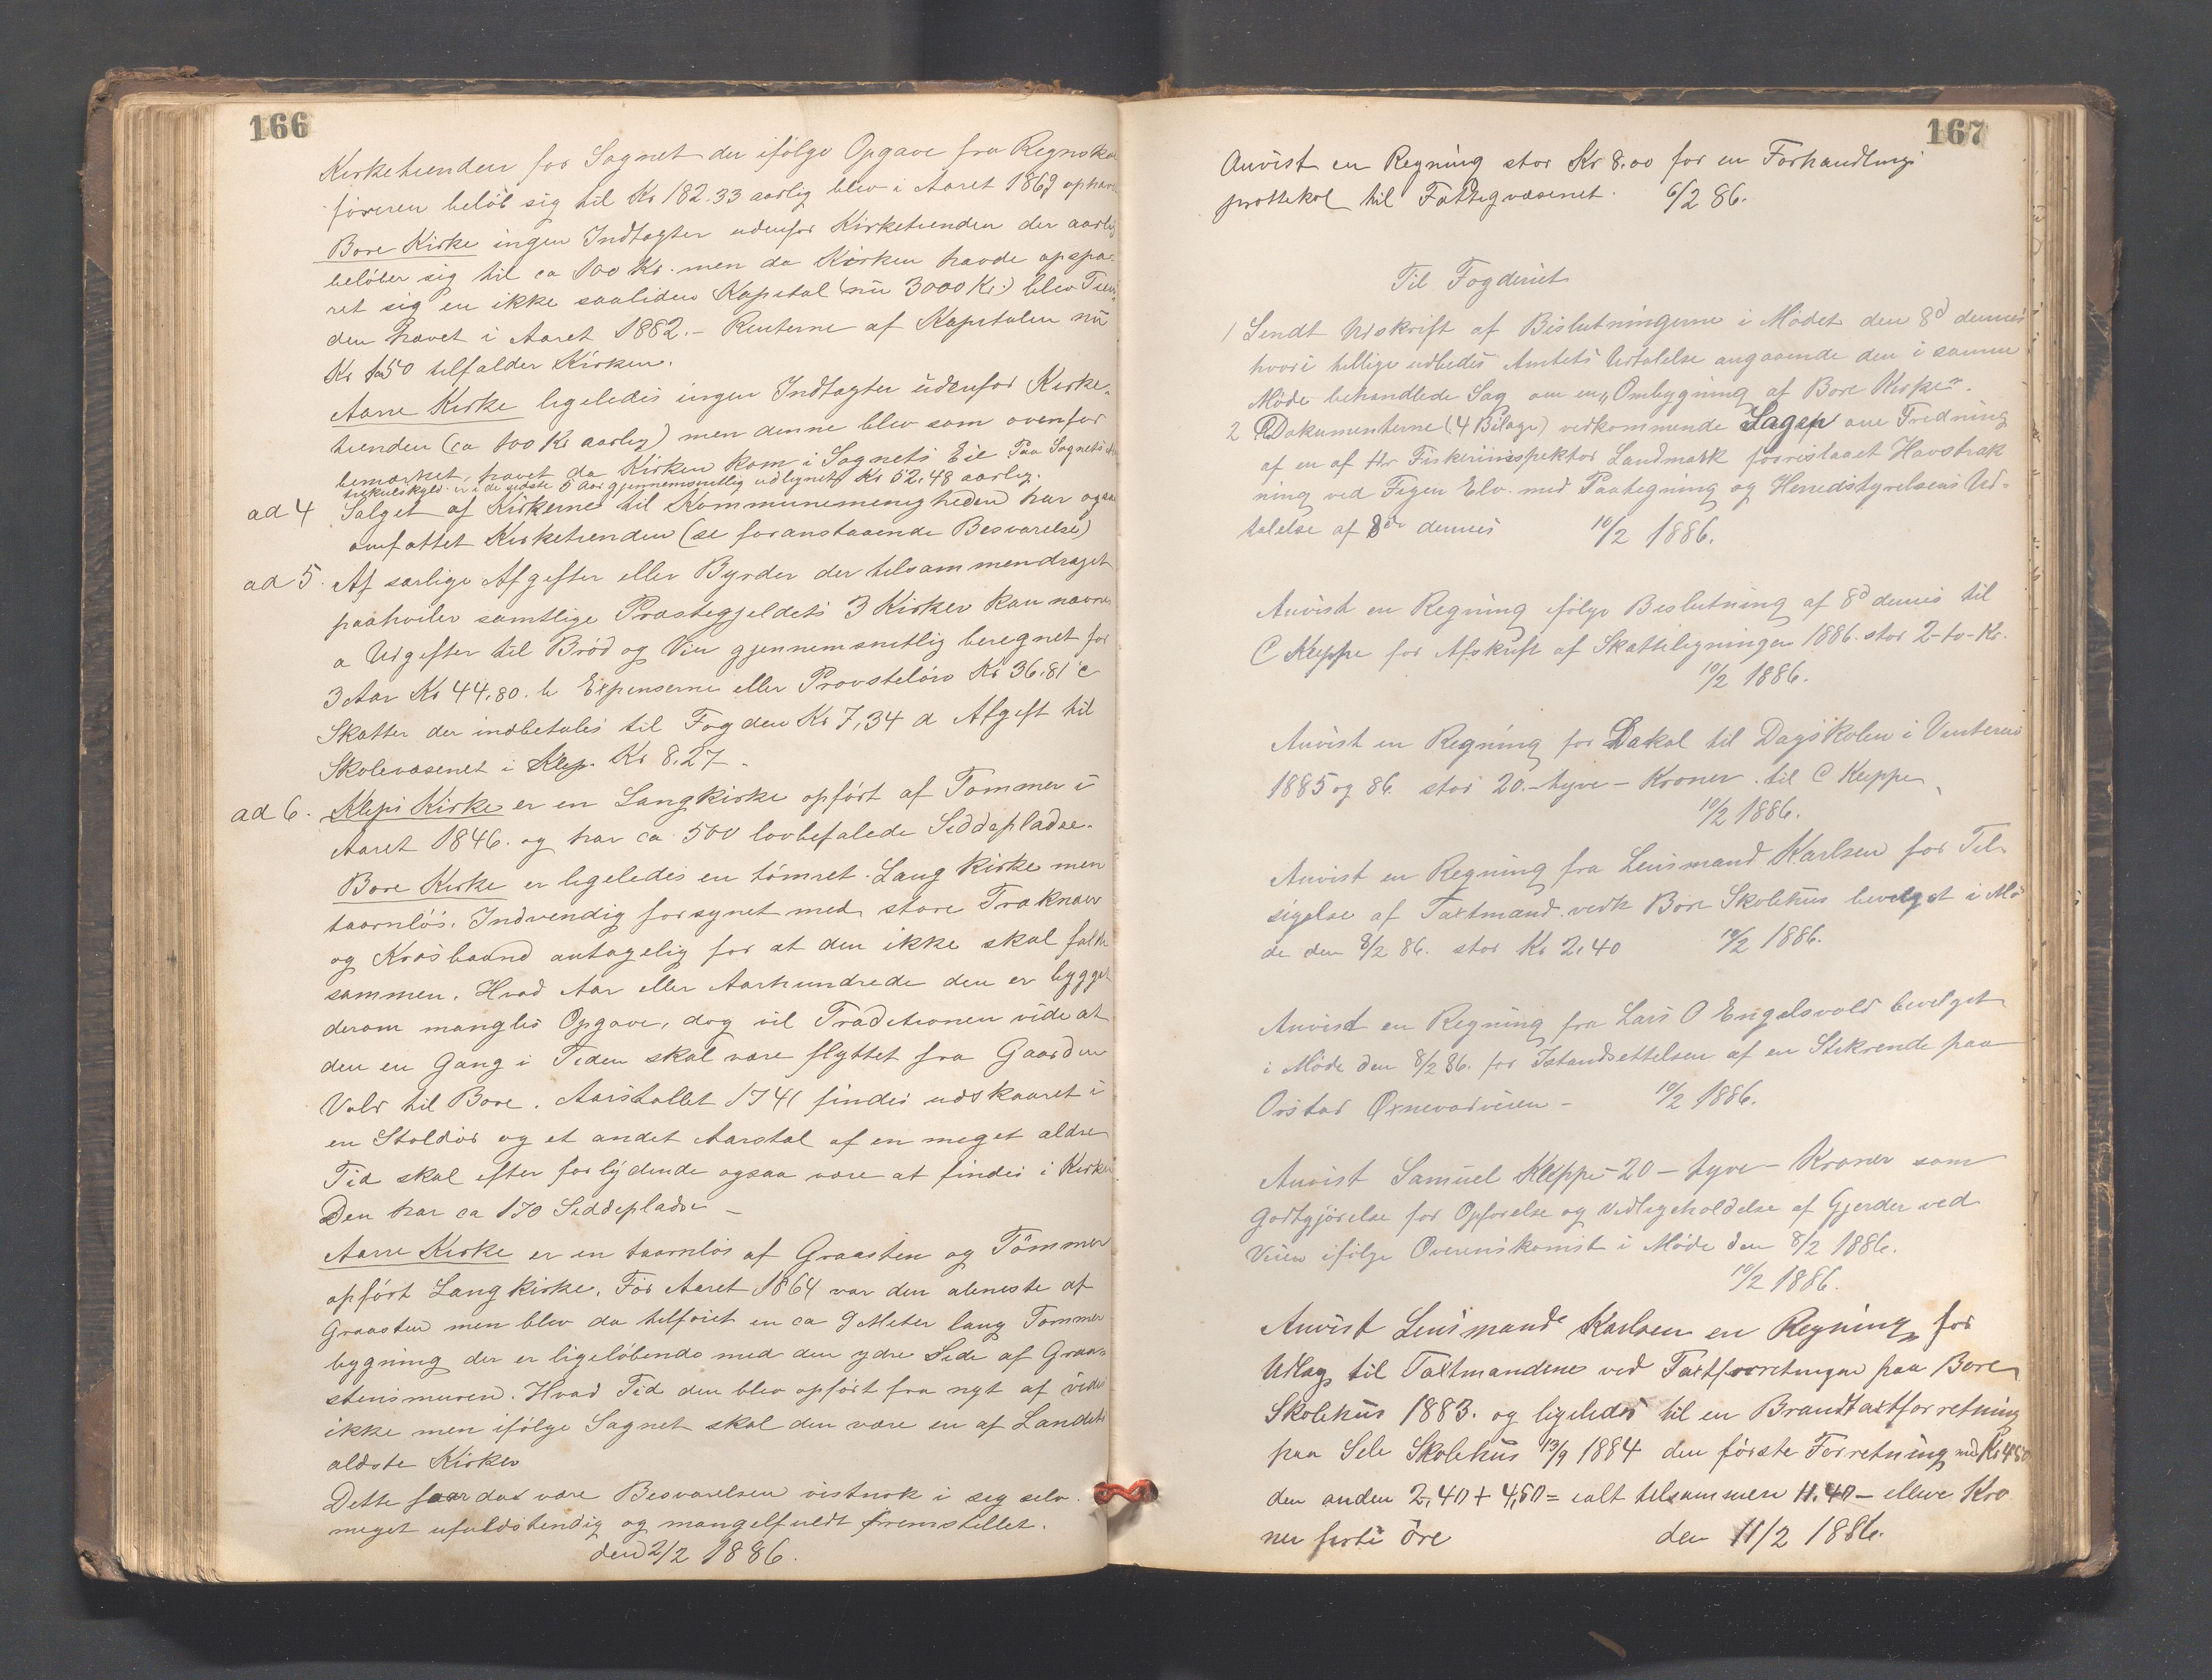 166
Kirketienden for Sognet der ifölge Opgave fra Regnska
föreren belöb sig til Kr 182.33 aarlig blev i Aaret 1869 ophæv
Bore Kirke ingen Indtægter udenfor Kirketienden der aarlig
belöber sig til ca 100 Kr. men da Kirken havde opspa-
ret sig en ikke saaliden Kapital (nu 3000 Kr.) blev Tien
den hævet i Aaret 1882. - Renterne af Kapitalen nu
Kr 150 tilfalder Kirken.
Aarre Kirke ligeledes ingen Indtægter udenfor Kirke-
tienden (ca 100 Kr aarlig) men denne blev som ovenfor
bemærket, hævet da Kirken kom i Sognets Eie Paa Sognets
er i de sidste 5 Aar gjennemsnitlig udlignet Kr 52,48 aarlig.
ad 4 Salget af Kirkerne til Kommunemenigheden har ogsaa
omfattet Kirketienden (se foranstaaende Besvarelse)
ad 5. Af særlige Afgifter eller Byrder der tilsammendraget
paahviler samtlige Præstegjeldets 3 Kirker kan nævnes
a Udgifter til Bröd og Vin gjennemsnitlig beregnet for
3 Aar Kr 44.80. b Expenserne eller Provstelön Kr 36.81 c
Skatter der indbetales til Fogden Kr 7,34 d Afgift til
Skolevæsenet i Klep. Kr 8.27 -
ad 6. Kleps Kirke er en Langkirke opfört af Tømmer i
Aaret 1846. og har ca 500 lovbefalede Siddepladse.
Bore Kirke er ligeledes en tömret Langkirke men
taarnlös. Indvendig forsynet med store Træknær
og Krösbaand antagelig for at den ikke skal falde
sammen. Hvad Aar eller Aarhundrede den er bygget
derom mangles Opgave, dog vil Traditionen vide at
den en Gang i Tiden skal være flyttet fra Gaarden
Vold til Bore. Aarstallet 1741 findes udskaaret i
en Stoldör og et andet Aarstal af en meget ældre
Tid skal efter forlydende ogsaa være at findes i Kirken.
Den har ca 170 Siddepladse -
Aarre Kirke er en taarnlös af Graasten og Tömmer
opfört Langkirke. För Aaret 1864 var den aleneste af
Graasten men blev da tilföiet en ca 9 Meter lang Tømmer
bygning der er ligelöbende med den ydre Side af Graa-
stensmuren. Hvad Tid den blev opfört fra nyt af vides
ikke men ifölge Sagnet skal den være en af Landets
ældste Kirker
Dette faar da være Besvarelsen vistnok i sig selv
meget ufuldstendig og mangelfuldt fremstillet.
den 2/2 1886.
167
Anvist en Regning stor Kr 8.00 for en Forhandlings
prottekol til Fattigvæsenet. 6/2 86.
Til Fogderiet
1 Sendt Udskrift af Beslutningerne i Mödet den 8d dennes
hvori tillige udbedes Amtets Udtalelse angaaende den i samme
Möde behandlede Sag om en "Ombygning af Bore Kirke".
2 Dokumenterne (4 Bilage) vedkommende Sagen om Fredning
af en af Hr Fiskeriinspektør Landmark foreslaaet Havstræk
ning ved Figen Elv. med Paategning og Herredstyrelsens Ud-
talelse af 8de dennes 10/2 1886.
Anvist en Regning ifölge Beslutning af 8d dennes til
C Kleppe for Afskrift af Skatteligningen 1886. stor 2-to-Kr.
10/2 1886.
Anvist en Regning for Lokal til Dagskolen i Vinteren
1885 og 86. stor 20. - tyve - Kroner. til C Kleppe
10/2 1886.
Anvist en Regning fra Lensmand Karlsen for Til-
sigelse af Taxtmænd. vedk Bore Skolehus bevilget i Mö
de den 8/2 86. stor Kr 2.40 10/2 1886.
Anvist en Regning fra Lars O Engelsvold bevilget
i Möde den 8/2 86. for Istandsettelsen af en Stikrende paa
Orstad Øxnevadveien - 10/2 1886.
Anvist Samuel Kleppe - 20 - tyve - Kroner som
Godtgjörelse for Opförelse og Vedligeholdelse af Gjerder ved
Veien ifölge Overenskomst i Möde den 8/2 1886.
10/2 1886.
Anvist Lensmand Karlsen en Regning for
Udlæg til Taxtmændene ved Taxtforretningen paa Bore
Skolehus 1883. og ligeledes til en Brandtaxtforretning
paa Sele Skolehus 13/9 1884 den förste Forretning med Kr 4.50
den anden 2,40 + 4,50 = ialt tilsammen 11.40 - elleve Kro
ner forti öre den 11/2 1886.